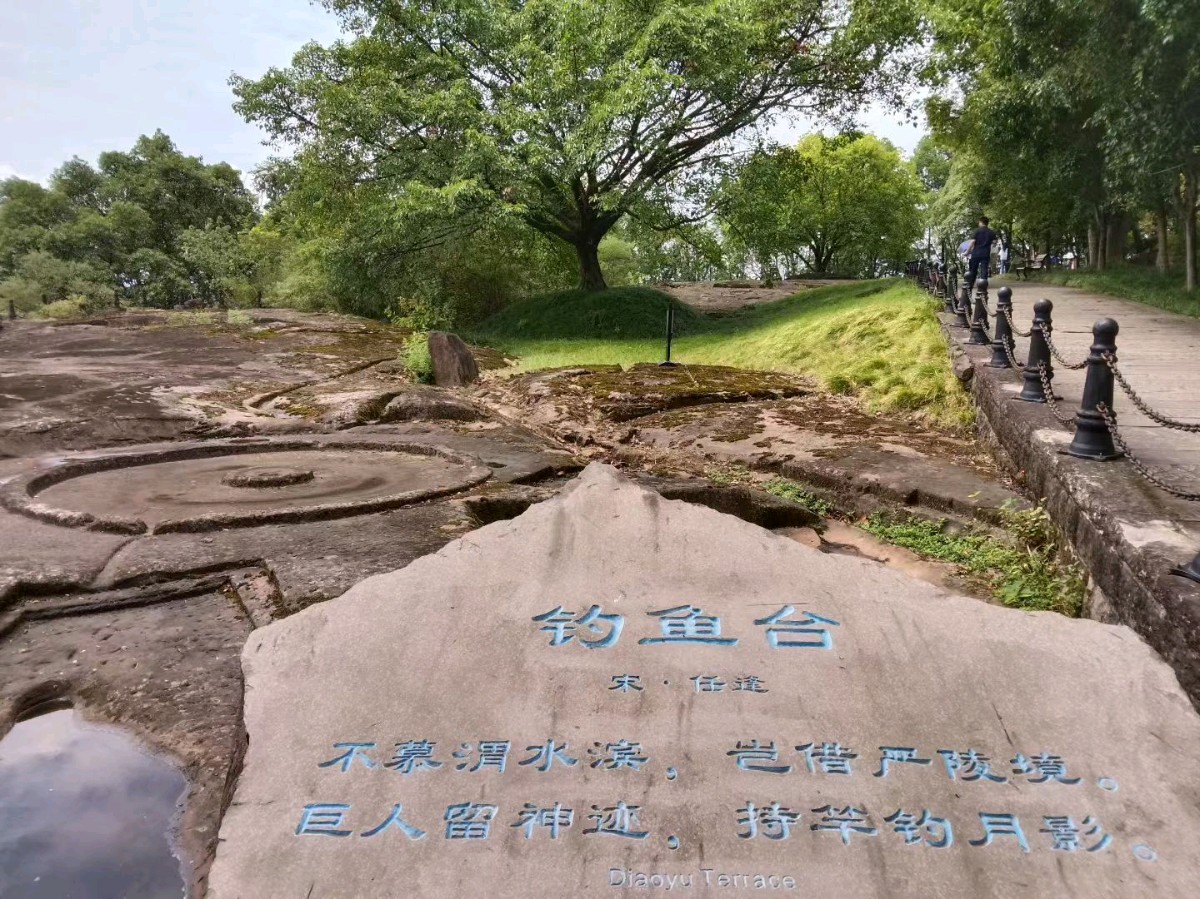 钓鱼台
宋·任逢
不慕渭水滨，岂借严陵境。
巨人留神迹，持竿钓月影。
Diaoyu Terrace